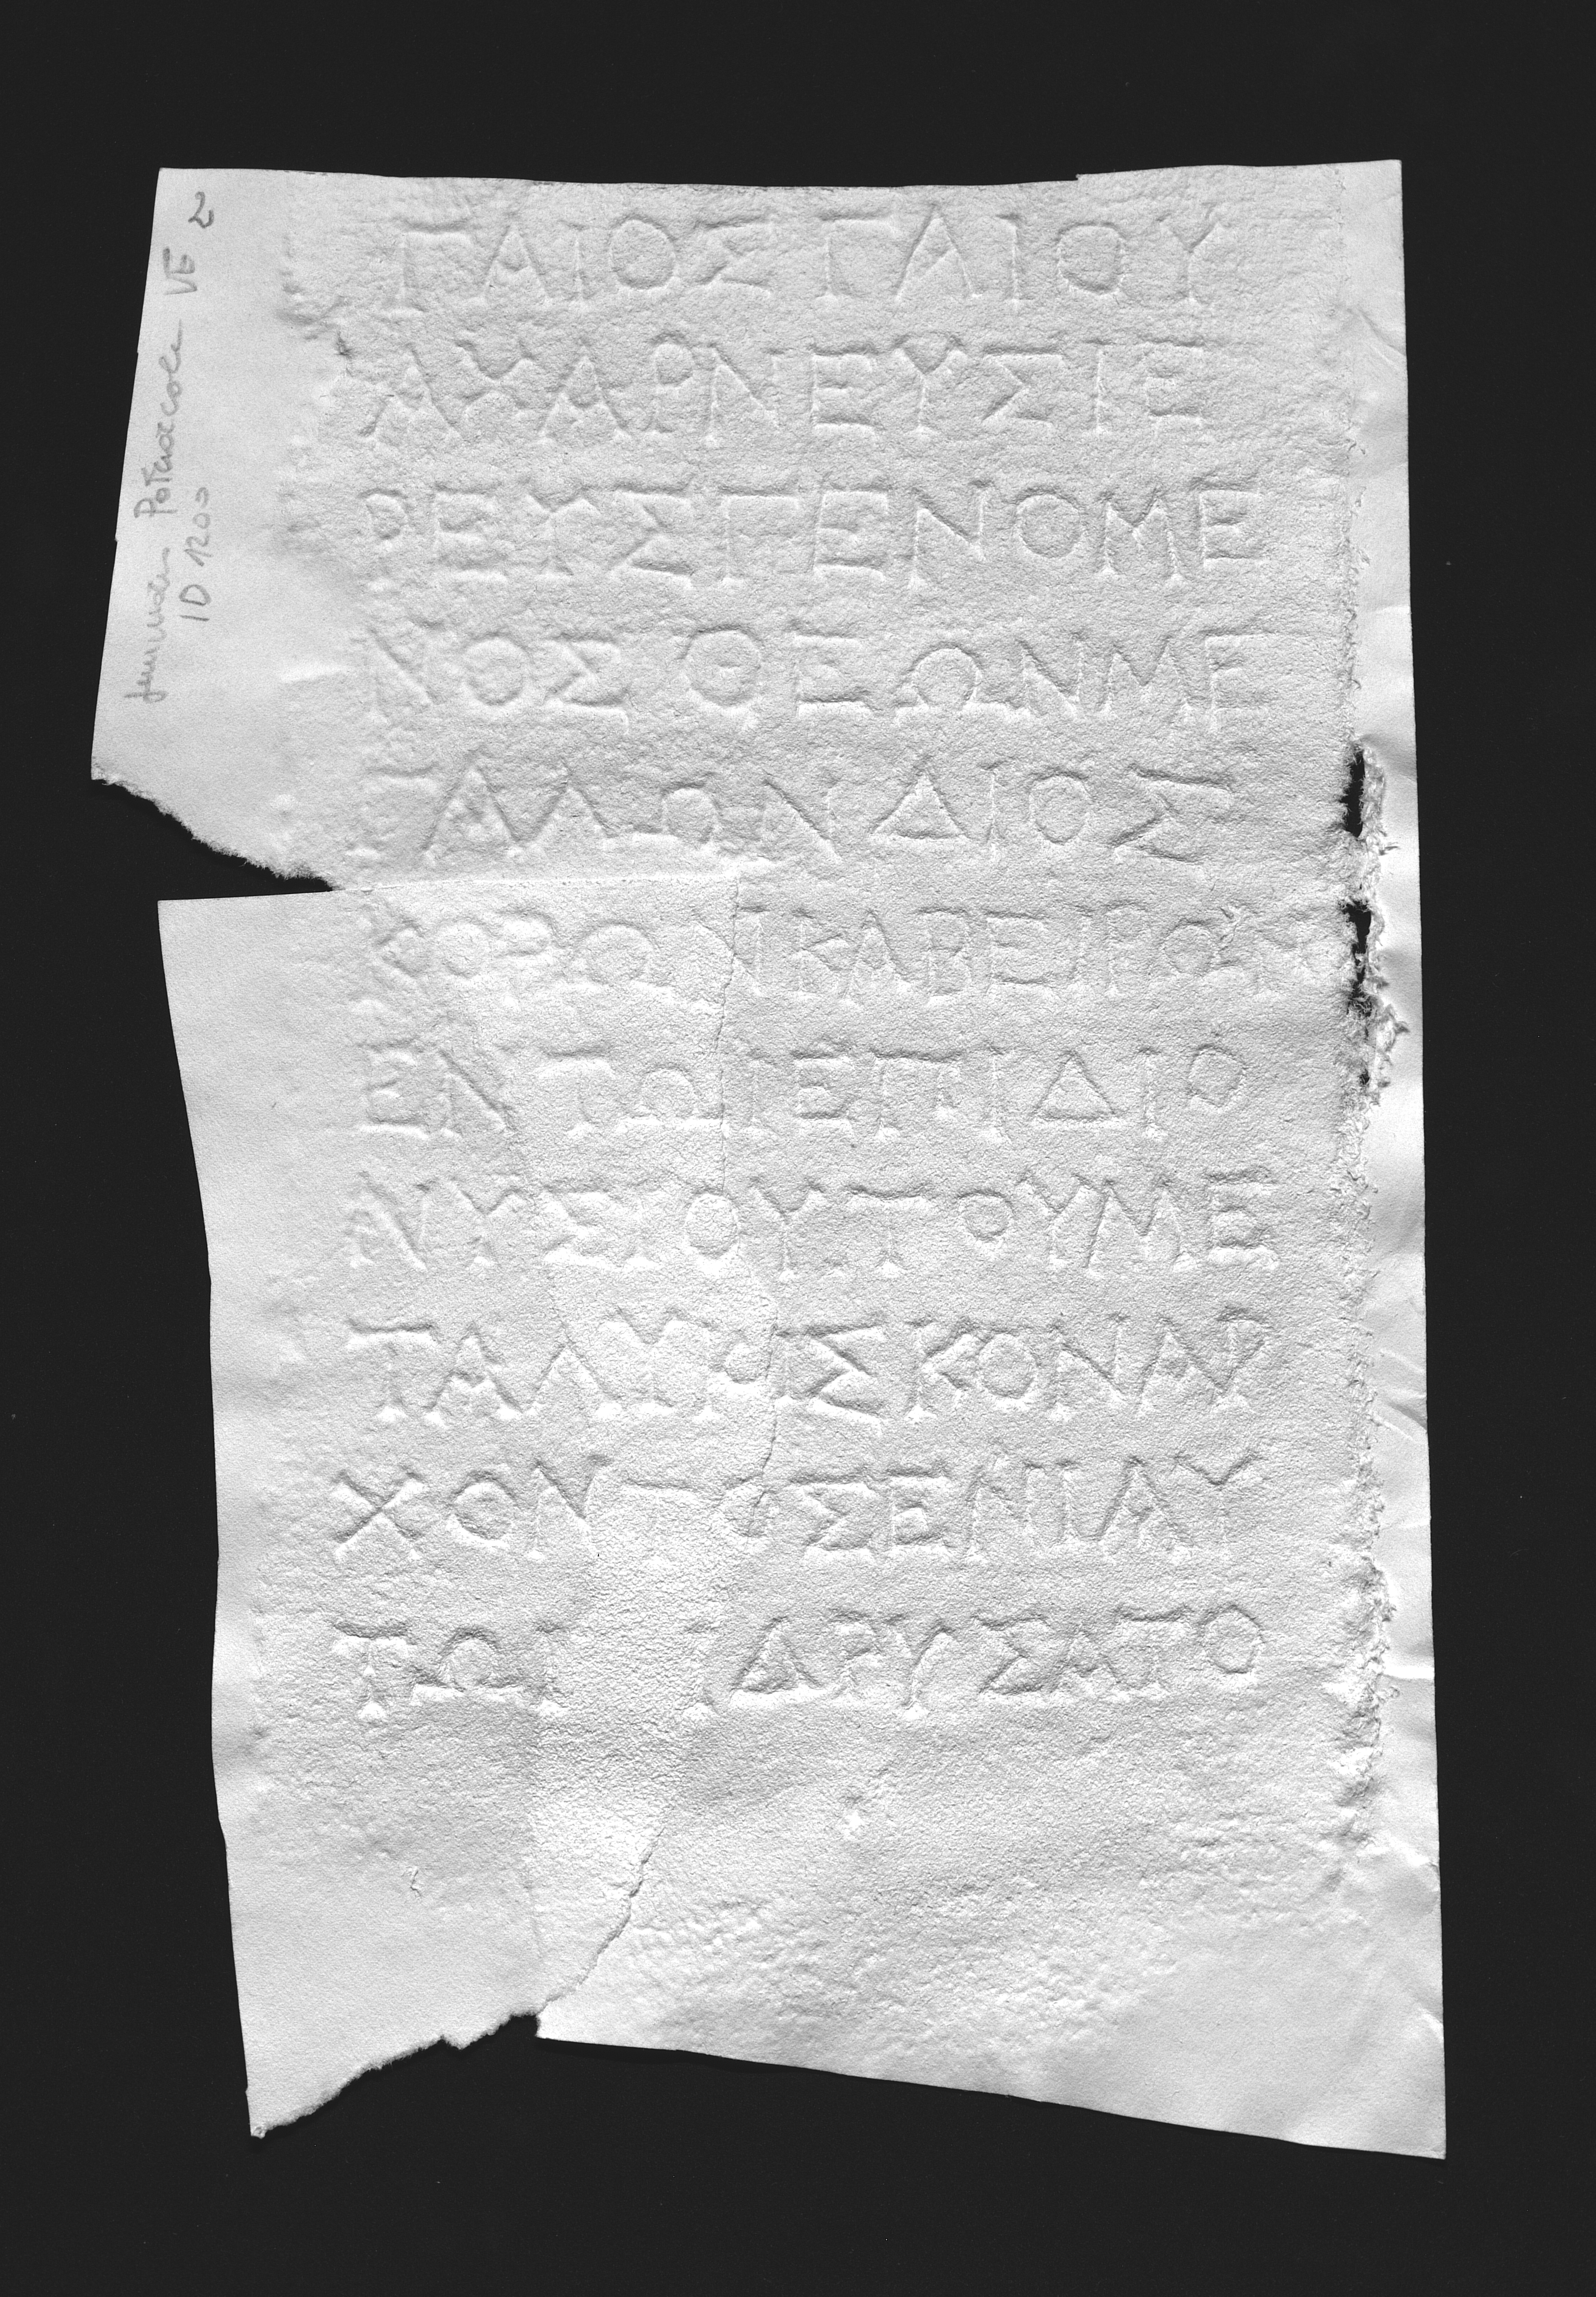 ΓΑΙΟΣ ΓΑΙΟΥ
ΑΧΑΡΝΕΥΣ ΙΕ
ΡΕΥΣ ΓΕΝΟΜΕ
ΝΟΣ ΘΕΩΝ ΜΕ
ΓΑΛΩΝ ΔΙΟΣ
ΚΟΡΩΝ ΚΑΒΕΙΡΩΝ
ΕΝ ΤΩΙ ΕΠΙ ΔΙΟ
ΝΥΣΙΟΥ ΤΟΥ ΜΕ
ΤΑ ΛΥΚΙΣΚΟΝ ΑΡ
ΧΟΝΤΟΣ ΕΝΙΑΥ
ΤΩΙ ΙΔΡΥΣΑΤΟ
VE 2
ID 1200